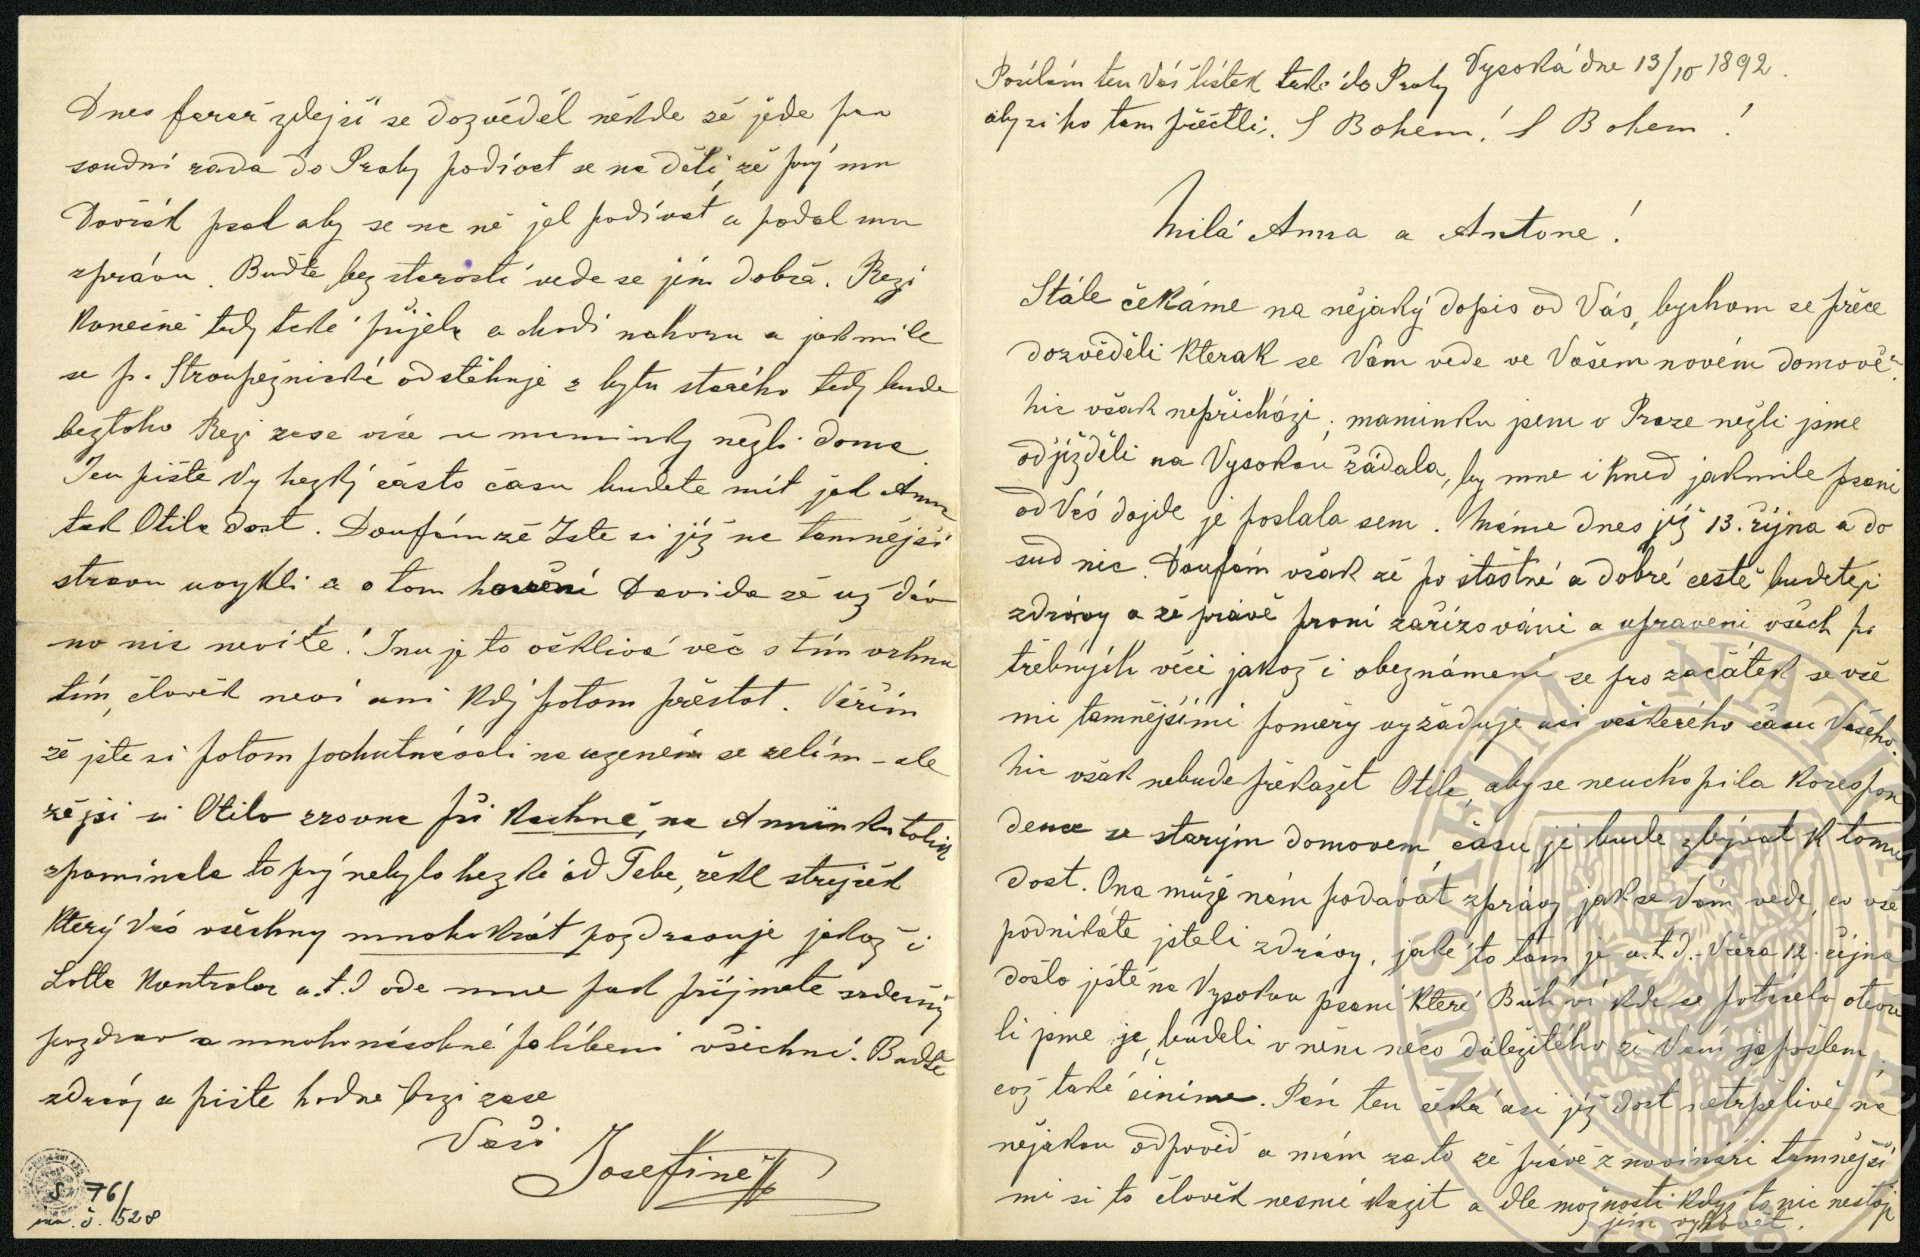 Vysoká dne 13/10 1892.
Posílám ten Váš lístek také do Prahy
aby si ho tam přečtli. S Bohem! S Bohem!
Milá Anna a Antone!
Stále čekáme na nějaký dopis od Vás, bychom se přece
dozvěděli kterak se Vám vede ve Vašem novém domově?
nic však nepřichází; maminku jsem v Praze nežli jsme
odjížděli na Vysokou žádala, by mne i hned jakmile psaní
od Vás dojde je poslala sem. Máme dnes již 13. října a do
sud nic. Doufám však že po šťastné a dobré cestě budete
zdrávy a že právě první zařizováni a upraveni všech po
třebných věcí jakož i obeznámení se pro začátek se vše
mi tamnějšími poměry vyžaduje asi veškerého času Vašeho.
Nic však nebude překážet Otile, aby se neuchopila korespon
dence se starým domovem, času jí bude zbývat k tomu
dost. Ona může nám podávat zprávy jak se Vám vede, co vše
podnikáte jsteli zdrávy, jaké to tam je a.t.d. Včera 12. října
došlo ještě na Vysokou psaní které Bůh ví kde se potácelo otevře
li jsme je, budeli v něm něco důležitého že Vám je pošlem,
což také činíme. Pán ten čeká asi již dost netrpělivě na
nějakou odpověď a mám za to že právě z novináři tamnější
mi si to člověk nesmí kazit a dle možnosti když to nic nestojí
jim vyhovět.
Dnes farář zdejší se dozvěděl někde že jede pan
soudní rada do Prahy podívat se na děti, že prý mu
Dvořák psal aby se na ně jel podívat a podal mu
zprávu. Buďte bez starosti vede se jim dobře. Rezi
konečně tedy také přijela a chodí nahoru a jakmile
se p. Stroupežnické odstěhuje z bytu starého tedy bude
beztoho Rezi zase více u maminky nežli doma.
Jen pište Vy hezky často času budete mít jak Anna
tak Otila dost. Doufám že Jste si již na tamnější
stravu uvykli a o tom Davida že už dáv
no nic nevíte! Inu je to ošklivá věc s tím vrhnu
tím, člověk neví ani kdy potom přestat. Věřím
že jste si potom pochutnávali na uzeném se zelím – ale
že jsi si Otilo zrovna při kachně, na Anninku tolik
zpomínala to prý nebylo hezké od Tebe, řekl strejček
který Vás všechny mnohokrát pozdravuje jakož i
Lotta Kontrolor a.t.d ode mne pak přijmete srdečný
pozdrav a mnohonásobné políbeni všichni. Buďte
zdrávy a pište hodně brzi zase
Vaší
Josefině
S 76/
inv. č. 1528
MUSEUM NATIONALE